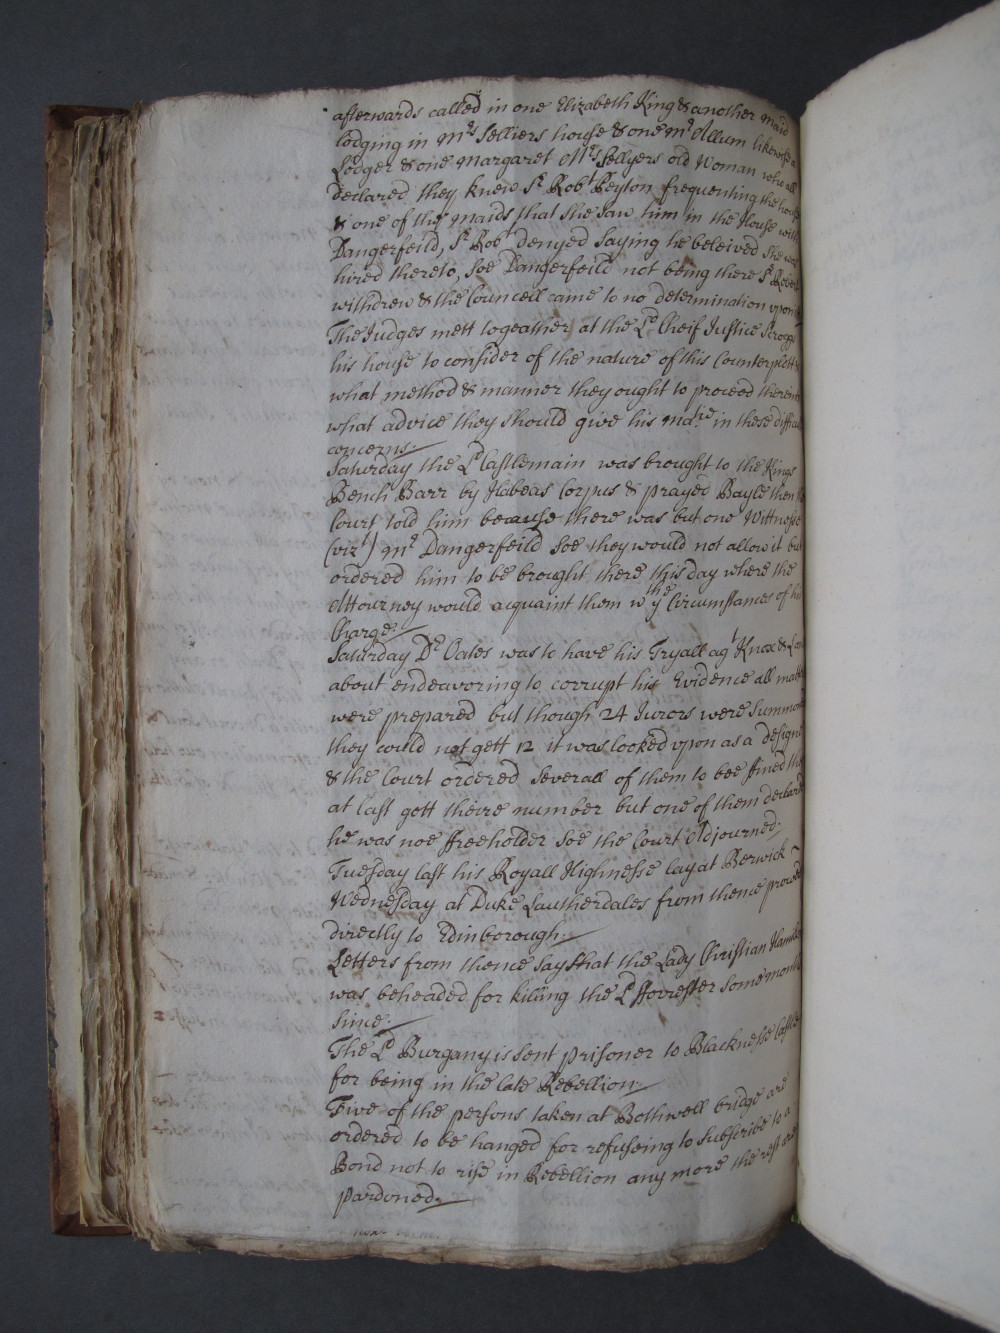 afterwards called in one Elizabeth King & another maid
lodging in Mrs Selliers house & one Mr Allum likewise a
Lodger & one Margaret Mrs Sellyers old Woman who all
declared they knew Sr Robt Peyton frequenting the house
& one of the maids that she saw him in the House with
Dangerfeild, Sr Robt denyed saying he beleived she was
hired thereto, soe Dangerfeild not being there Sr Robert
withdrew & the Councell came to no determination upon
The Judges mett togeather at the Ld Cheif Justice Scroggs
his house to consider of the nature of this Counterplott &
what method & manner they ought to proceed therein
what advice they should give his Matie in these difficult
concerns
Saturday the Ld Castlemain was brought to the Kings
Bench Barr by Habeas Corpus & prayed Bayle then
Court told him because there was but one Wittnesse
(vizt) Mr Dangerfeild soe they would not allow it but
ordered him to be brought there this day where the
Attourney would acquaint them wth ye Circumstances of his
Charge
Saturday Dr Oates was to have his Tryall agt Knox &
about endeavoring to corrupt his Evidence all matters
were prepared but though 24 Jurors were summoned
they could not gett 12 it was looked upon as a designe
& the Court ordered severall of them to bee ffined
at last gott theire number but one of them declared
he was noe ffreeholder soe the Court Adjourned:
Tuesday last his Royall Highnesse lay at Berwick
Wednesday at Duke Lautherdales from thence
directly to Edinborough:
Letters from thence say that the Lady Christian Hamilton
was beheaded for killing the Ld fforrester some months
since:
The Ld Burgany is sent prisoner to Blacknesse Castle
for being in the late Rebellion:
Five of the persons taken at Bothwell bridge are
ordered to be hanged for refuseing to subscribe to a
Bond not to rise in Rebellion any more the rest are
pardoned